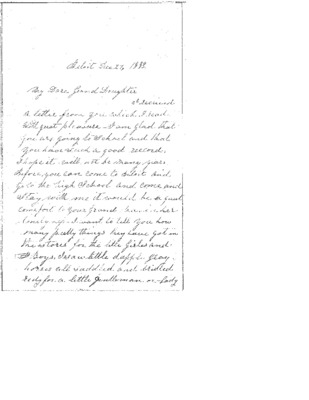 Beloit Dec 26, 1882
My Dear Grand Daughter
I received
a letter from you which I read
with great pleasure I am glad that
you are going to School and that
you have such a good record.
I hope it will not be many years
before you can come to Beloit and
go to the high School and come and
stay with me it would be a great
comfort to your Grand Ma in her
lonely age. I want to tell you how
many pretty things they have got in
the stores for the little Girls and
Boys. I saw little dapple gray
horses all saddled and bridled
ready for a little Gentleman or lady